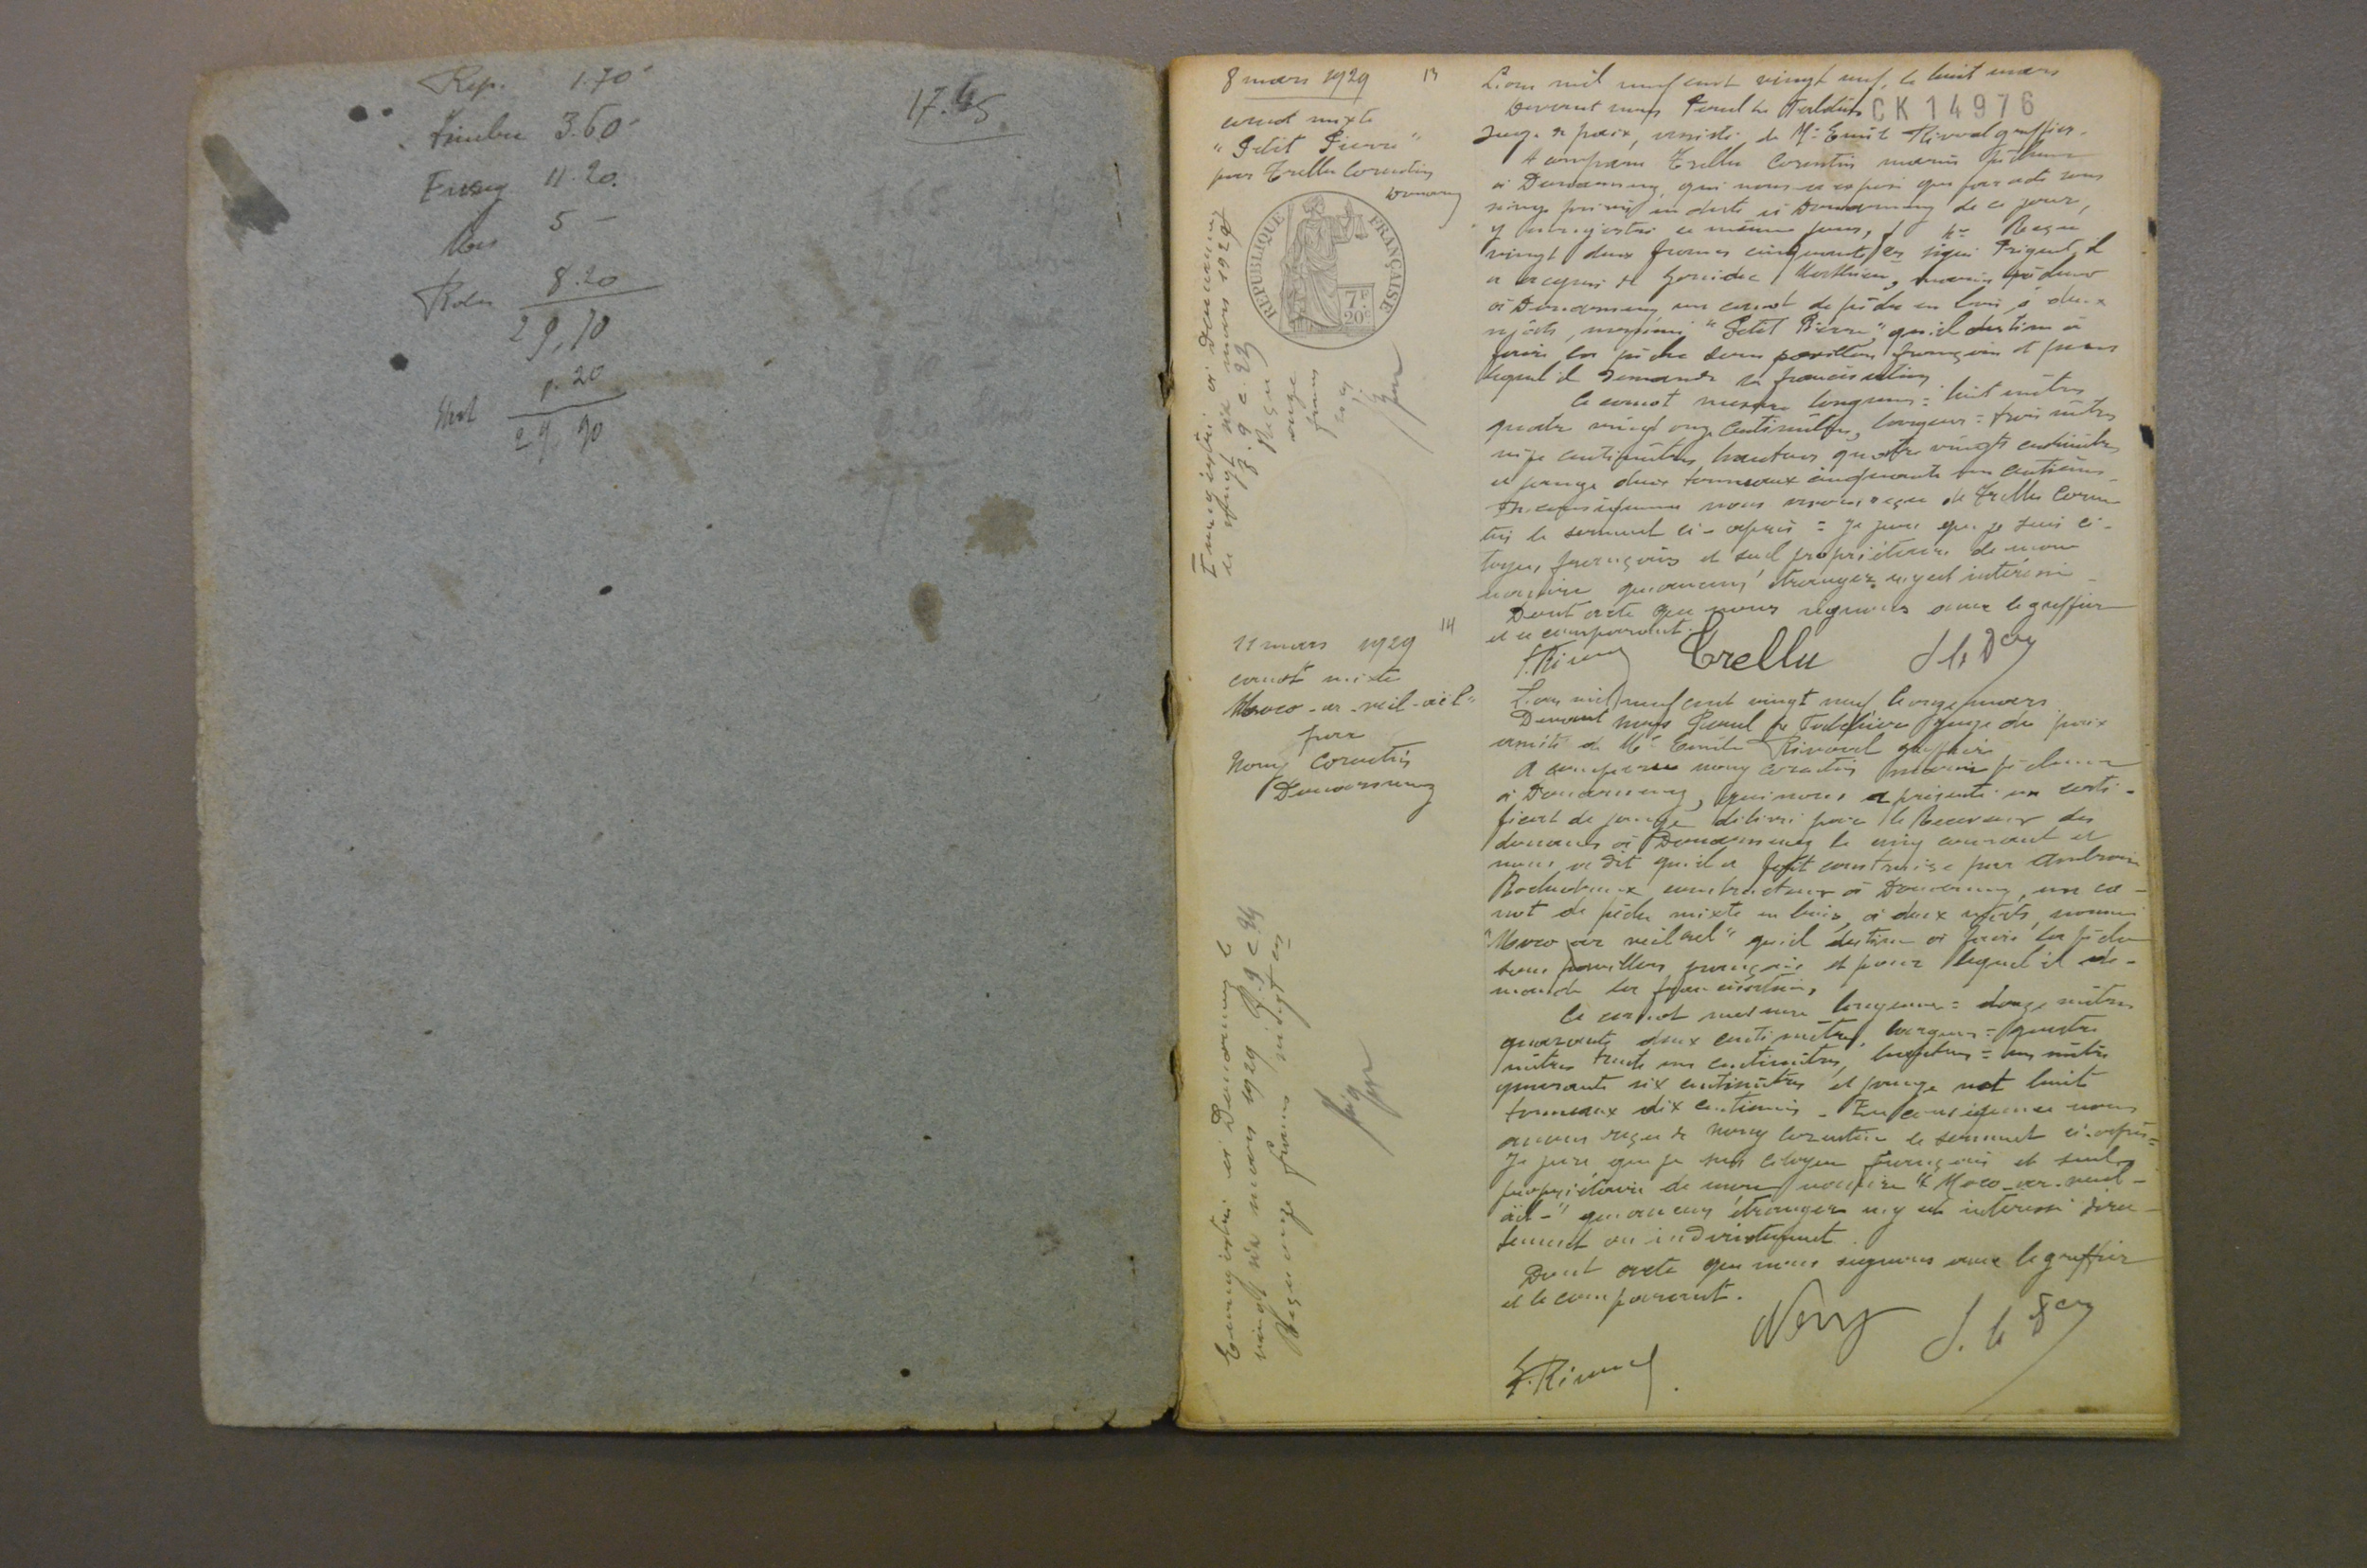 Rep. 1.70
Timbre 3.60
Enreg 11.20
5 -
Roles 8.20
29,70
0.20
29,90
17.45
8 mars 1929 13
canot mixte
"Petit Pierre"
par Trellu Corentin
Douarnenez
REPUBLIQUE FRANÇAISE
7F
20c
Enregistré à Douarnenez
le vingt six mars 1929
F. 9 c. 23
Reçu
onze
francs
CK14976
L'an mil neuf cent vingt neuf, le huit mars
Devant nous
Juge de paix, assisté de Me Emile Rivoal greffier.
A comparu Trellu Corentin marin pêcheur
à Douarnenez, qui nous a exposé que par acte sous
seings privés en date à Douarnenez de ce jour,
enregistré ce même jour, Reçu
vingt deux francs cinquante ces signé Prigent, il
a acquis de marin pêcheur
à Douarnenez un canot de pêche en bois, à deux
mâts, nommé "Petit Pierre", qu'il destine à
faire la pêche sous pavillon français et pour
lequel il demande la francisation
Ce canot mesure longueur = huit mètres
quatre vingt onze centimètres, largeur = trois mètres
centimètres, hauteur quatre vingts centimètres
et jauge deux tonneaux cinquante un centièmes
En conséquence nous avons reçu de Trellu Coren-
tin le serment ci-après = Je jure que je suis ci-
toyen français et seul propriétaire de mon
navire qu'aucun étranger n'y est intéressé
Dont acte que nous signons avec le greffier
et le comparant.
E. Rivoal Trellu
11 mars 1929 14
canot mixte
"Moco-ar-veil-aël"
par
Nouy Corentin
Douarnenez
Enregistré à Douarnenez le
vingt six mars 1929 F. 9 c. 24
Reçu onze francs vingt ces
L'an mil neuf cent vingt neuf le onze mars
Devant nous juge de paix
assisté de Me Emile Rivoal greffier
A comparu Nouy Corentin marin pêcheur
à Douarnenez, qui nous a présenté un certi-
ficat de jauge délivré par le Receveur des
douanes à Douarnenez le cinq courant et
nous a dit qu'il a fait construire par Ambroise
constructeur à Douarnenez, un ca-
not de pêche mixte en bois, à deux mâts, nommé
"Moco ar veil ael" qu'il destine à faire la pêche
sous pavillon français et pour lequel il de-
mande la francisation,
Ce canot mesure longueur = douze mètres
quarante deux centimètres, largeur = quatre
mètres trente un centimètres, hauteur = un mètre
quarante six centimètres et jauge net huit
tonneaux dix centièmes - En conséquence nous
avons reçu de Nouy Corentin le serment ci-après =
Je jure que je suis citoyen français et seul
propriétaire de mon navire "Moco-ar-veil-
aël-" qu'aucun étranger n'y est intéressé direc-
tement ou indirectement.
Dont acte que nous signons avec le greffier
et le comparant.
Nouy
E. Rivoal